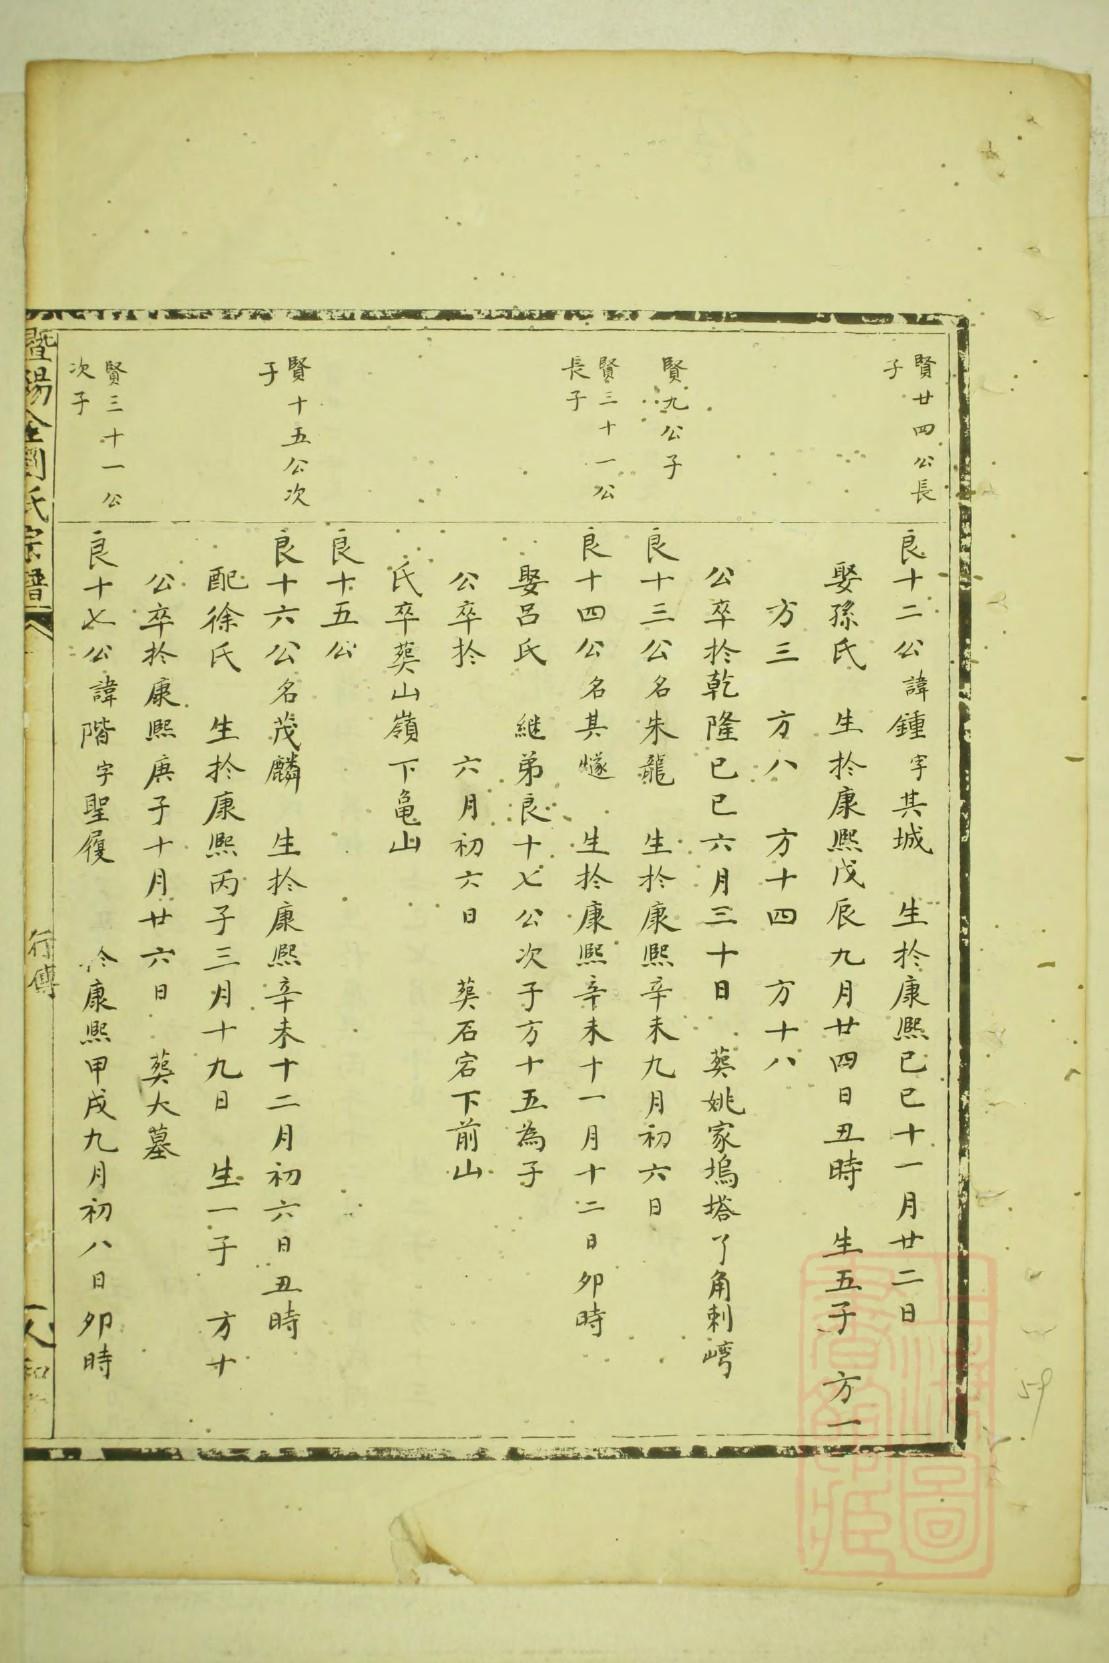 賢廿四公長
子
良十二公諱鍾字其城 生於康熙己巳十一月廿二日
娶孫氏 生於康熙戊辰九月廿四日丑時 生五子 方一
方三 方八 方十四 方十八
公卒於乾隆己巳六月三十日 葬姚家塢塔了角剌嶀
賢九公子
良十三公名朱龍 生於康熙辛未九月初六日
賢三十一公
長子
良十四公名其燧 生於康熙辛未十一月十二日卯時
娶呂氏 継弟良十七公次子方十五為子
公卒於 六月初六日 葬石宕下前山
氏卒葬山嶺下亀山
良十五公
賢十五公次
子
良十六公名茂麟 生於康熙辛未十二月初六日丑時
配徐氏 生於康熙丙子三月十九日 生一子 方廿
公卒於康熙庚子十月廿六日 葬大墓
賢三十一公
次子
良十七公諱階字聖履 於康熙甲戌九月初八日卯時
暨陽全劉氏宗譜
行傳
上海圖書館藏
59